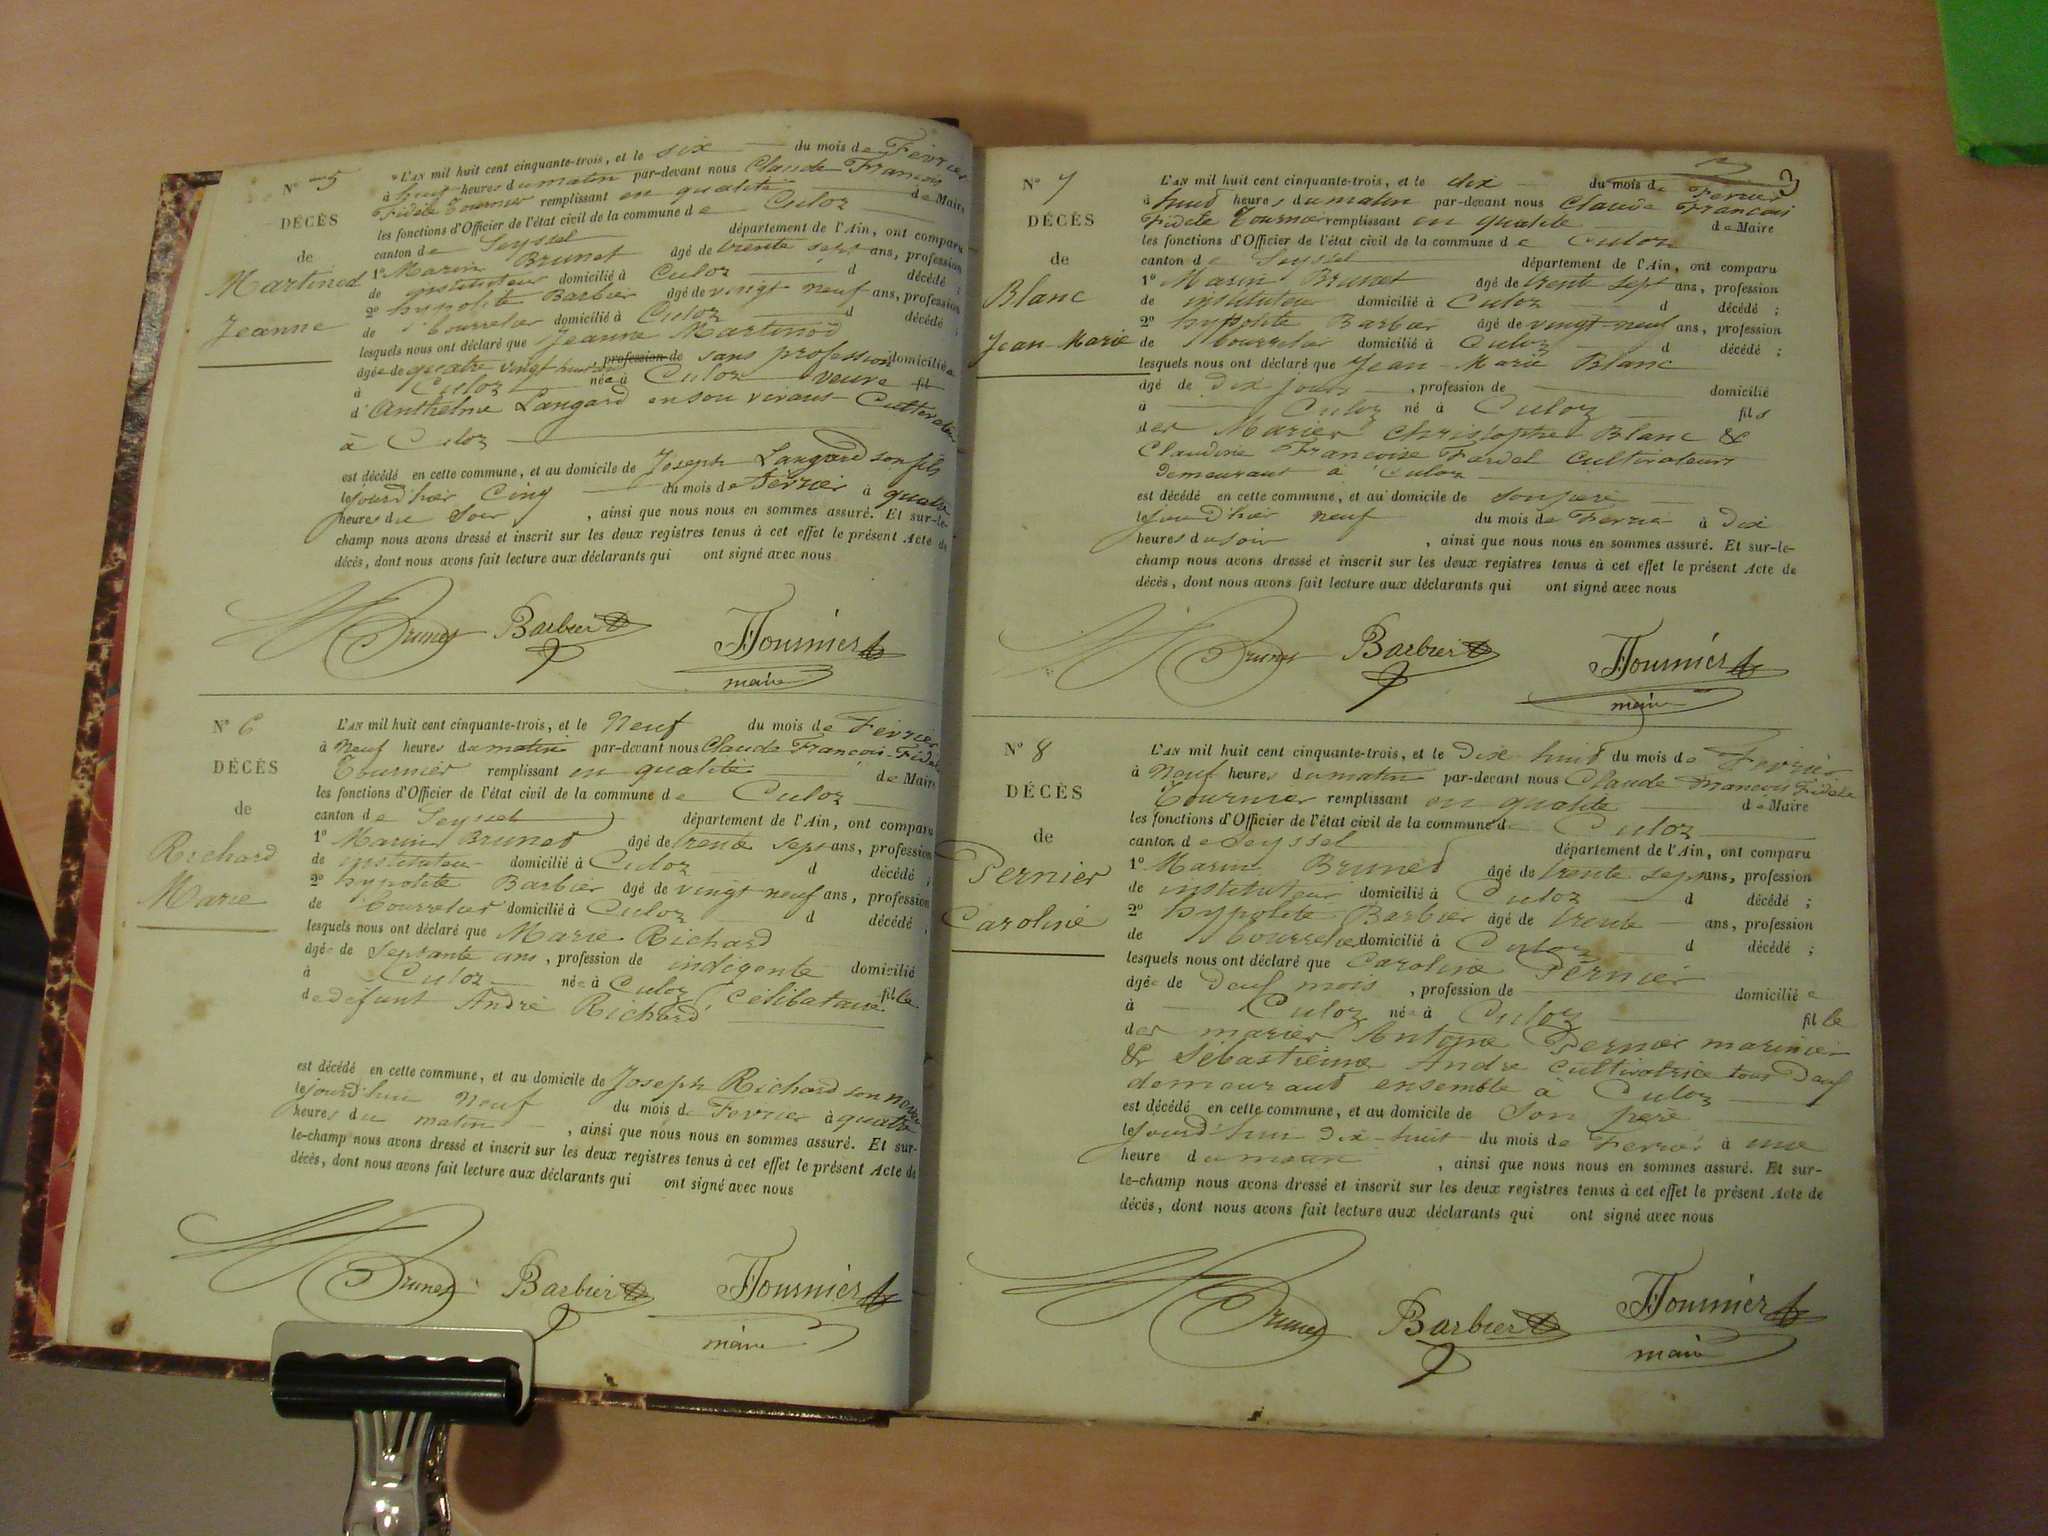 N° 5
DÉCÈS
de
Martinod
Jeanne
L'AN mil huit cent cinquante-trois, et le six du mois de Fevrier
à huit heures du matin par-devant nous Claude François
Fidele Tournier remplissant en qualité de Maire
les fonctions d'Officier de l'état civil de la commune de Culoz
canton de Seyssel département de l'Ain, ont comparu
1° Marin Brunet âgé de trente sept ans, profession
de instituteur domicilié à Culoz d décédé ;
2° hypolite Barbier âgé de vingt neuf ans, profession
de bourrelier domicilié à Culoz d décédé ;
lesquels nous ont déclaré que Jeanne Martinod
âgée de quatre vingt huit ans, profession de sans profession domiciliée
à Culoz née à Culoz veuve fil
d'Anthelme Langard en son vivant Cultivateur
à Culoz
est décédé en cette commune, et au domicile de Joseph Langard son fils
le jourd'hier Cinq du mois de Fevrier à quatre
heures du Soir , ainsi que nous nous en sommes assuré. Et sur-le-
champ nous avons dressé et inscrit sur les deux registres tenus à cet effet le présent Acte de
décès, dont nous avons fait lecture aux déclarants qui ont signé avec nous
Brunet Barbier Tournier
maire
N° 6
DÉCÈS
de
Richard
Marie
L'AN mil huit cent cinquante-trois, et le Neuf du mois de Fevrier
à Neuf heures du matin par-devant nous Claude François-Fidele
Tournier remplissant en qualité de Maire
les fonctions d'Officier de l'état civil de la commune de Culoz
canton de Seyssel département de l'Ain, ont comparu
1° Marin Brunet âgé de trente sept ans, profession
de instituteur domicilié à Culoz d décédé ;
2° hypolite Barbier âgé de vingt neuf ans, profession
de bourrelier domicilié à Culoz d décédé ,
lesquels nous ont déclaré que Marie Richard
âgée de Septante ans , profession de indigente domicilié
à Culoz née à Culoz Célibataire fille
de defunt André Richard
est décédé en cette commune, et au domicile de Joseph Richard son neveu
le jourd'hui Neuf du mois de Fevrier à quatre
heures du matin , ainsi que nous nous en sommes assuré. Et sur-
le-champ nous avons dressé et inscrit sur les deux registres tenus à cet effet le présent Acte de
décès, dont nous avons fait lecture aux déclarants qui ont signé avec nous
Brunet Barbier Tournier
maire
3
N° 7
DÉCÈS
de
Blanc
Jean-Marie
L'AN mil huit cent cinquante-trois, et le dix du mois de Fevrier
à huit heures du matin par-devant nous Claude François
Fidele Tournier remplissant en qualité de Maire
les fonctions d'Officier de l'état civil de la commune de Culoz
canton de Seyssel département de l'Ain, ont comparu
1° Marin Brunet âgé de trente sept ans, profession
de instituteur domicilié à Culoz d décédé ;
2° hypolite Barbier âgé de vingt-neuf ans, profession
de bourrelier domicilié à Culoz d décédé ;
lesquels nous ont déclaré que Jean-Marie Blanc
âgé de dix jours , profession de domicilié
à Culoz né à Culoz fils
des Mariés Christophe Blanc &
Claudine Françoise Fardel Cultivateurs
demeurant à Culoz
est décédé en cette commune, et au domicile de son pere
le jourd'hier neuf du mois de Fevrier à dix
heures du soir , ainsi que nous nous en sommes assuré. Et sur-le-
champ nous avons dressé et inscrit sur les deux registres tenus à cet effet le présent Acte de
décès, dont nous avons fait lecture aux déclarants qui ont signé avec nous
Brunet Barbier Tournier
maire
N° 8
DÉCÈS
de
Pernier
Caroline
L'AN mil huit cent cinquante-trois, et le Dix huit du mois de Fevrier
à Neuf heures du matin par-devant nous Claude François Fidele
Tournier remplissant en qualité de Maire
les fonctions d'Officier de l'état civil de la commune de Culoz
canton de Seyssel département de l'Ain, ont comparu
1° Marin Brunet âgé de trente sept ans, profession
de instituteur domicilié à Culoz d décédé ;
2° hypolite Barbier âgé de trente ans, profession
de bourrelier domicilié à Culoz d décédé ;
lesquels nous ont déclaré que Caroline Pernier
âgée de deuf mois , profession de domiciliée
à Culoz née à Culoz fille
des mariés Antoine Pernier marinier
& Sébastienne André cultivatrice tous deuf
demeurant ensemble à Culoz
est décédé en cette commune, et au domicile de Son pere
le jourd'hui dix-huit du mois de Fevrier à une
heure du matin , ainsi que nous nous en sommes assuré. Et sur-
le-champ nous avons dressé et inscrit sur les deux registres tenus à cet effet le présent Acte de
décès, dont nous avons fait lecture aux déclarants qui ont signé avec nous
Brunet Barbier Tournier
maire